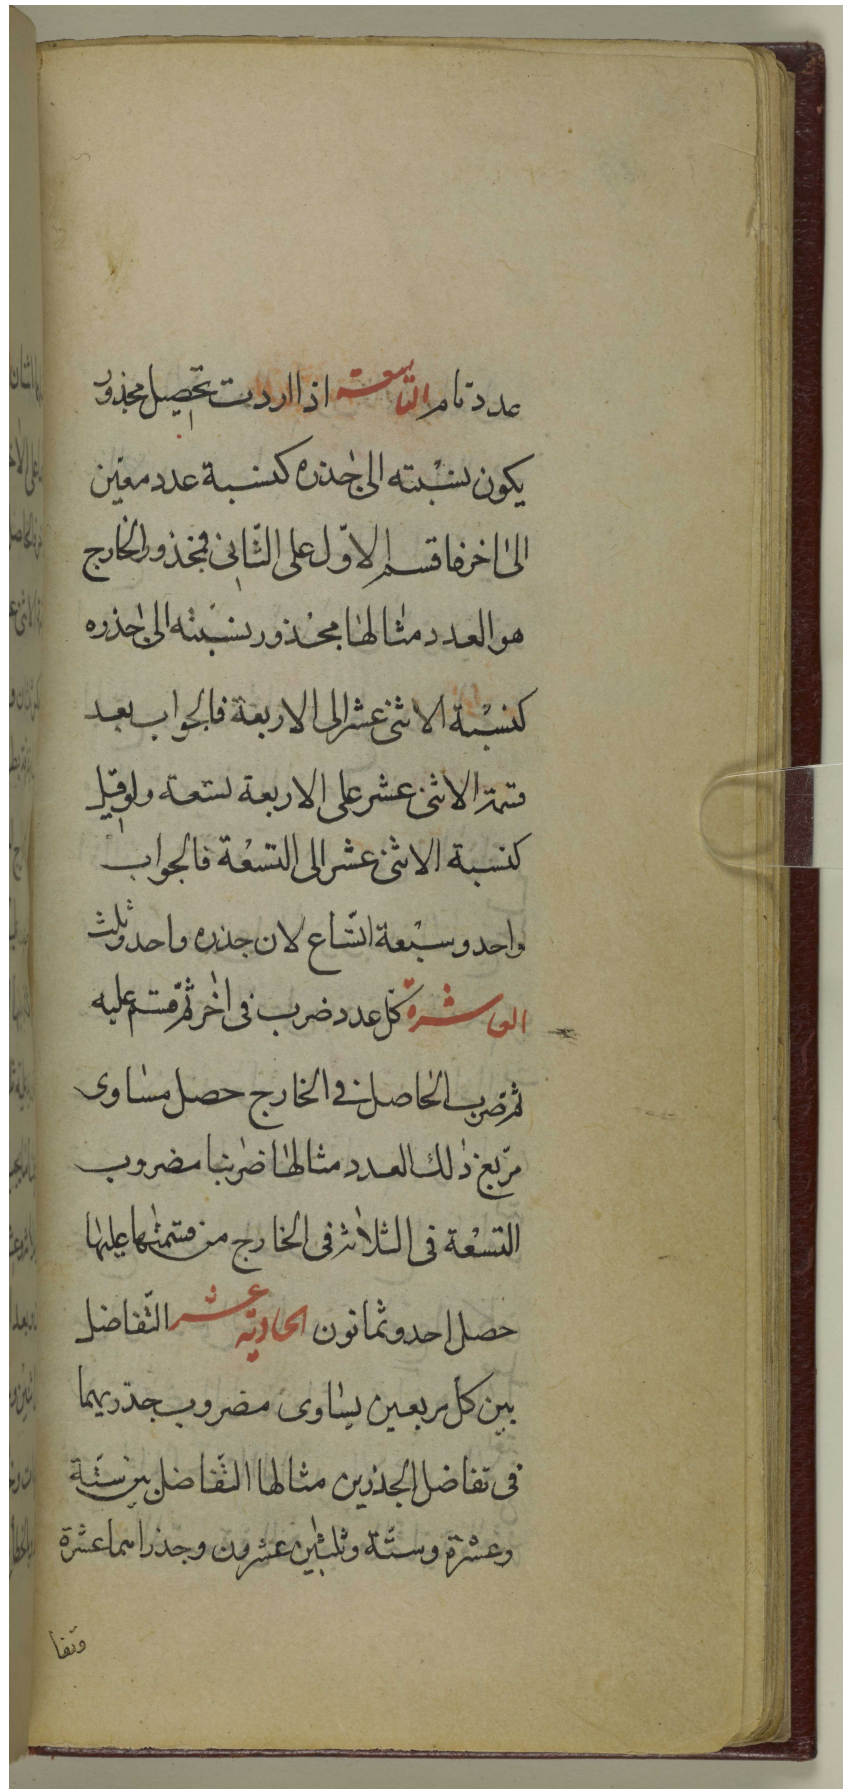 عدد تام التاسعة اذا اردت تحصيل مجذور
يكون نسبته الى جذره كنسبة عدد معين
الى اخر فاقسم الاوّل على الثّانى فمجذور الخارج
هو العدد مثالها مجذور نسبته الى جذره
كنسبة الاثنى عشر الى الاربعة فالجواب بعد
قسمة الاثنى عشر على الاربعة تسعة ولو قيل
كنسبة الاثنى عشر الى التسعة فالجواب
واحد وسبعة اتساع لان جذره واحد وثلث
العاشرة كل عدد ضرب فى اخر ثمّ قسم عليه
ثم ضرب الحاصل فى الخارج حصل مساوى
مربع ذلك العدد مثالها ضربنا مضروب
التسعة فى الثلاثة فى الخارج من قسمتها عليها
حصل احد وثمانون الحادية عشر التّفاضل
بين كل مربعين يساوى مضروب جذريهما
فى تفاضل الجذرين مثالها التّفاضل بين ستّة
وعشرة وستّة وثلثين عشرون وجذراهما عشرة
وتفا